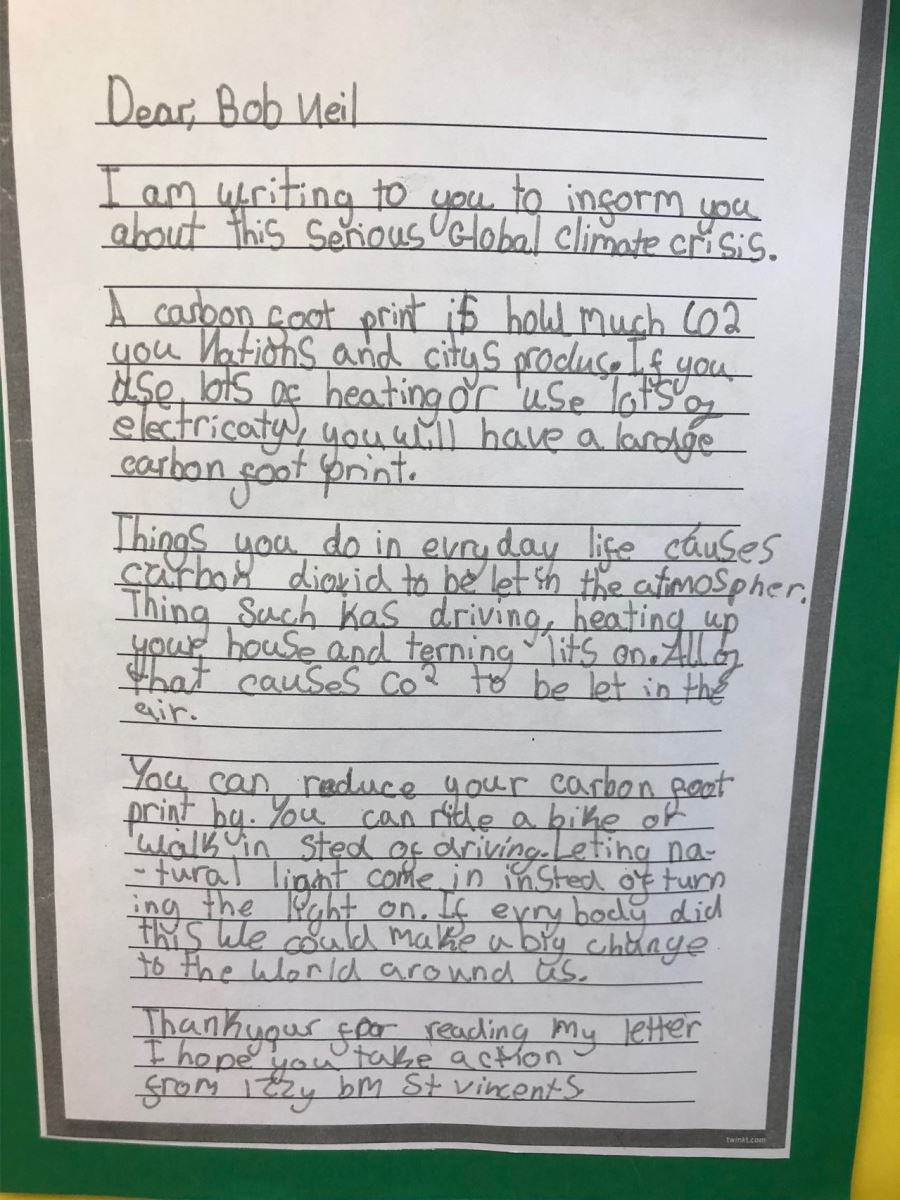 Dear, Bob Neil
I am writing to you to inform you
about this serious Global climate crisis.
A carbon foot print is how much CO2
you Nations and citys produs. If you
use lots of heating or use lots of
electricaty, you will have a lardge
carbon foot print.
Things you do in evryday life causes
carbon dioxid to be let in the atmospher.
Thing such as driving, heating up
your house and terning lits on. All of
that causes Co² to be let in the
air.
You can reduce your carbon foot
print by. You can ride a bike or
walk in sted of driving. Leting na-
-tural light come in insted of turn
ing the light on. If evry body did
this we could make a big change
to the world around us.
Thankyour for reading my letter
I hope you take action
from Izzy bm St vincents
twinkl.com